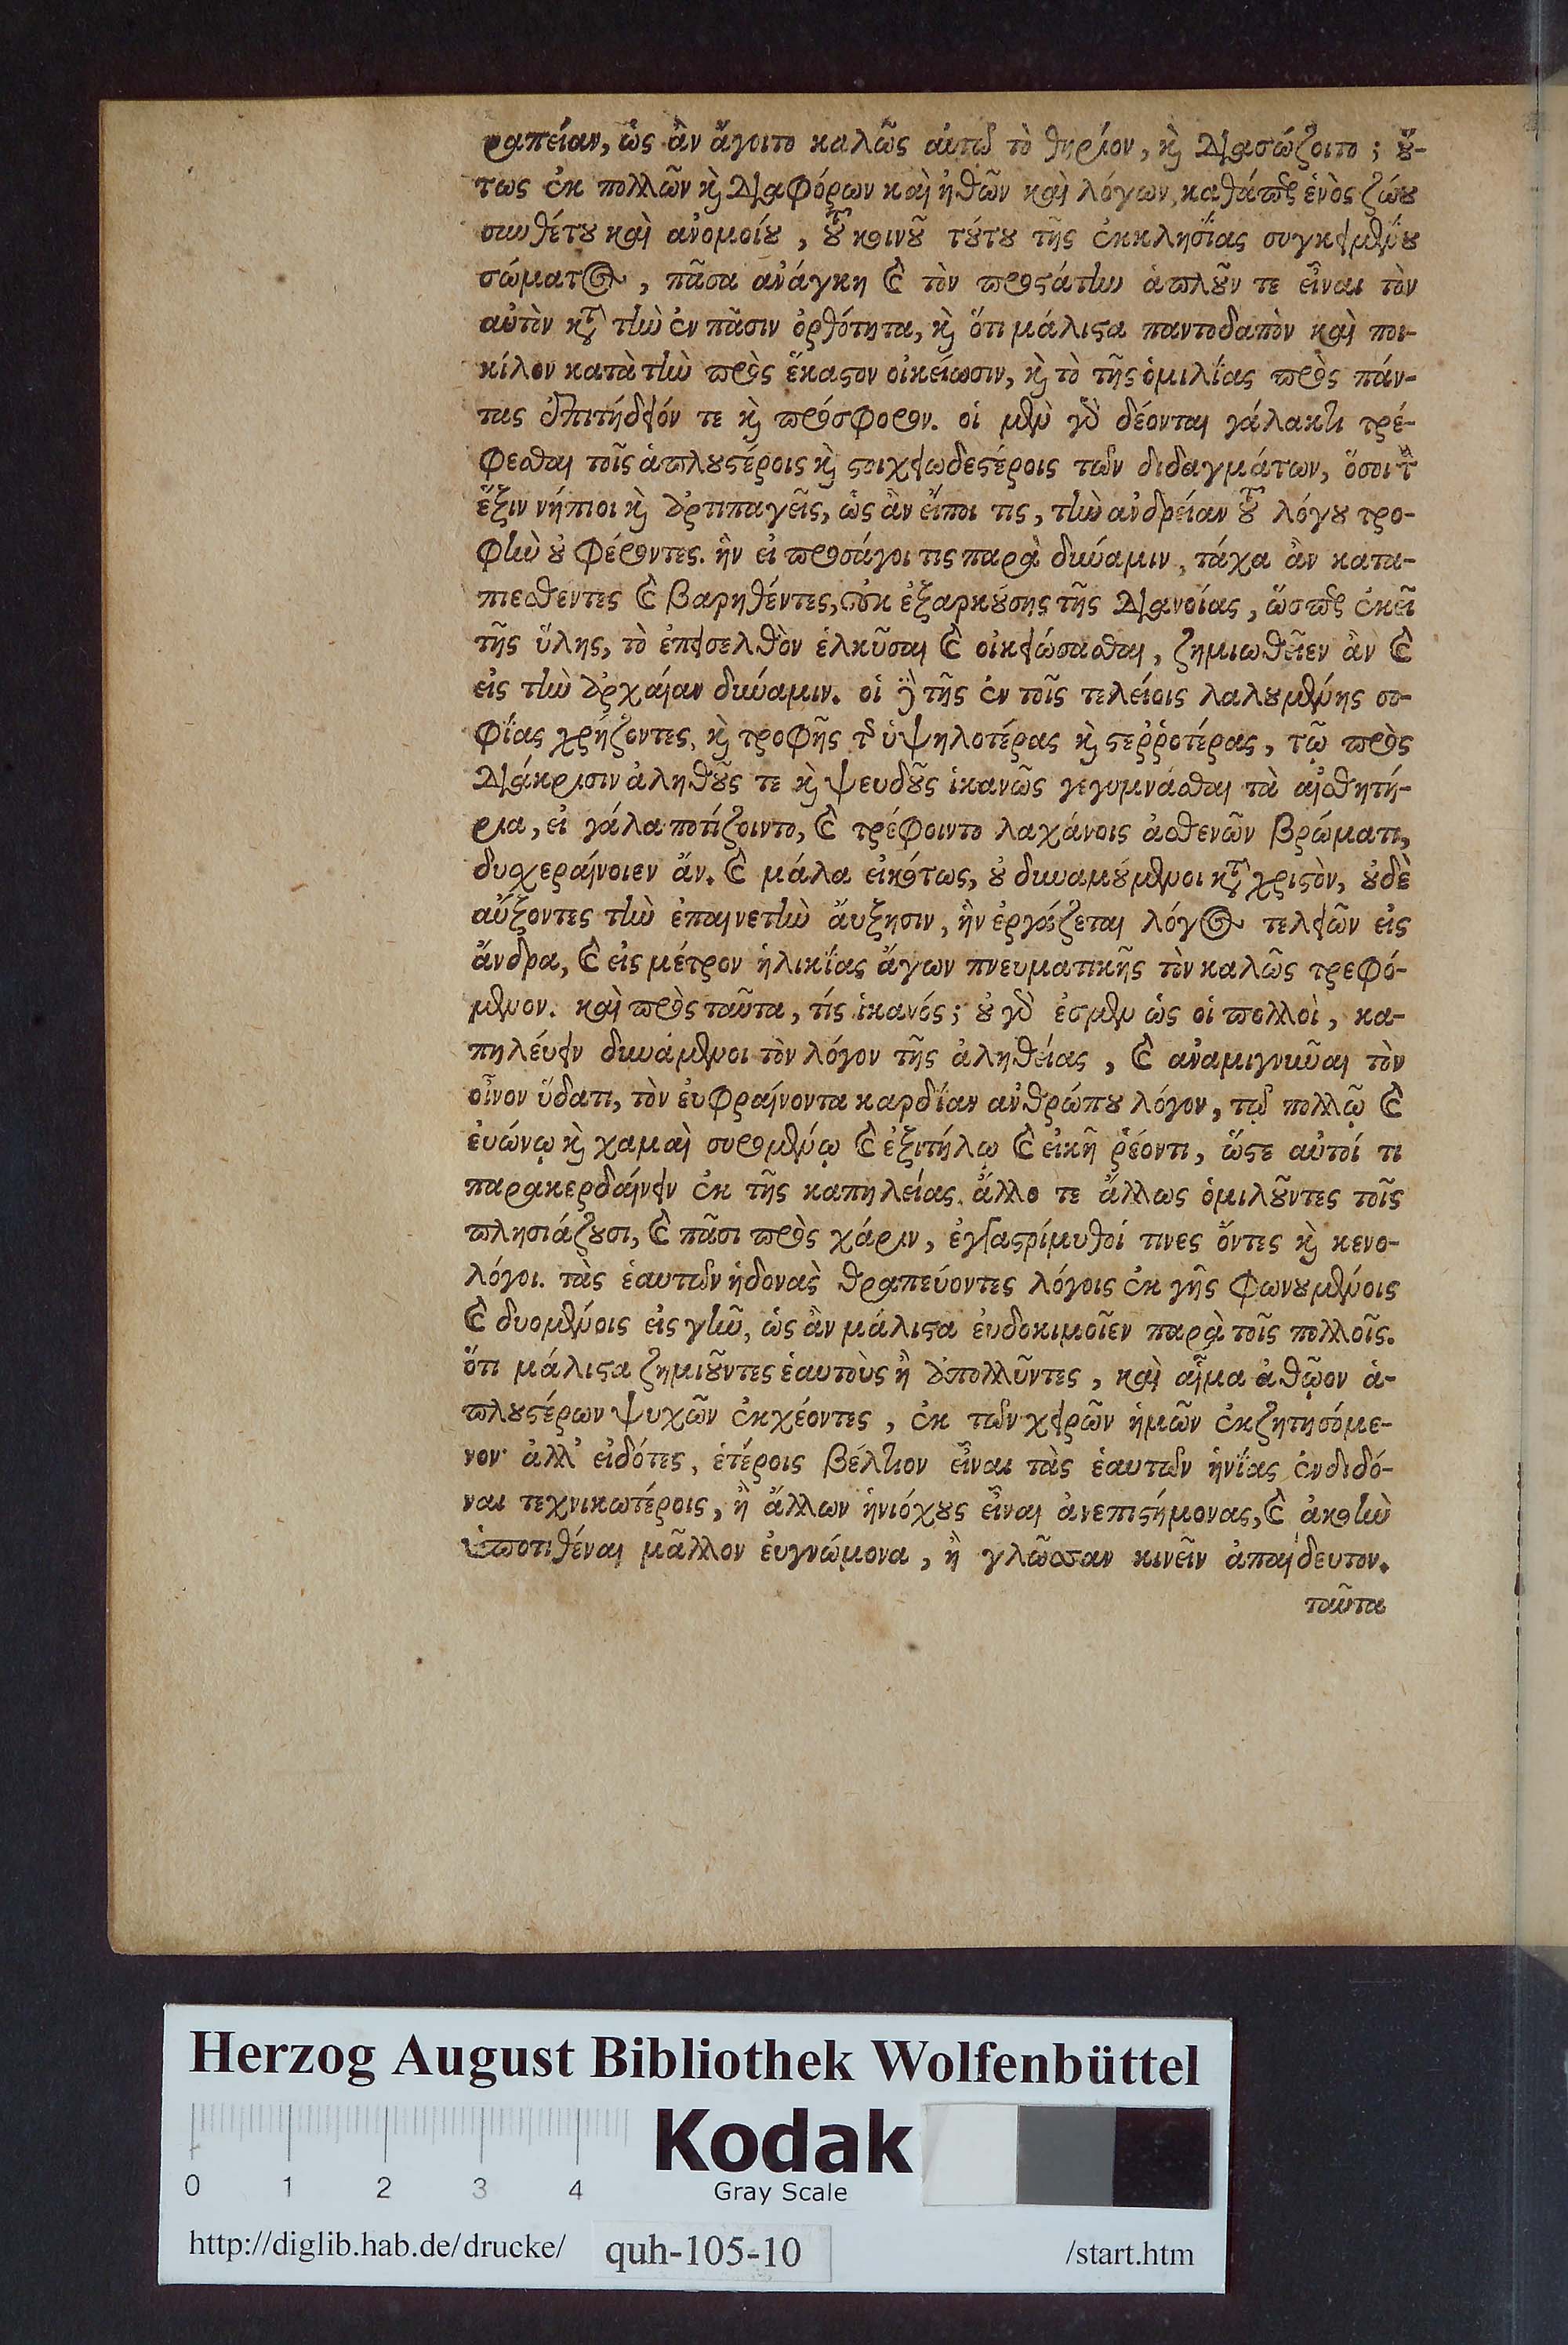 ραπείαν, ὡς ἂν ἄγοιτο καλῶς αὐτῷ τὸ θηρίον, καὶ διασώζοιτο; οὕ-
τως ἐκ πολλῶν καὶ διαφόρων καὶ ἠθῶν καὶ λόγων, καθάπερ ἑνὸς ζώου
συνθέτου καὶ ἀνομοίου, τοῦ κοινοῦ τούτου τῆς ἐκκλησίας συγκειμένου
σώματος, πᾶσα ἀνάγκη καὶ τὸν προστάτην ἁπλοῦν τε εἶναι τὸν
αὐτὸν κατὰ τὴν ἐν πᾶσιν ὀρθότητα, καὶ ὅτι μάλιστα παντοδαπὸν καὶ ποι-
κίλον κατὰ τὴν πρὸς ἕκαστον οἰκείωσιν, καὶ τὸ τῆς ὁμιλίας πρὸς πάν-
τας ἐπιτήδειόν τε καὶ πρόσφορον. οἱ μὲν γὰρ δέονται γάλακτι τρέ-
φεσθαι τοῖς ἁπλουστέροις καὶ στοιχειωδεστέροις τῶν διδαγμάτων, ὅσοι τὴν
ἕξιν νήπιοι καὶ ἀρτιπαγεῖς, ὡς ἂν εἴποι τις, τὴν ἀνδρείαν τοῦ λόγου τρο-
φὴν οὐ φέροντες. ἣν εἰ προσάγοι τις παρὰ δύναμιν, τάχα ἂν κατα-
πιεσθέντες καὶ βαρηθέντες, οὐκ ἐξαρκούσης τῆς διανοίας, ὥσπερ ἐκεῖ
τῆς ὕλης, τὸ ἐπεισελθὸν ἑλκῦσαι καὶ οἰκειώσασθαι, ζημιωθεῖεν ἂν καὶ
εἰς τὴν ἀρχαίαν δύναμιν. οἱ δὲ τῆς ἐν τοῖς τελείοις λαλουμένης σο-
φίας χρήζοντες, καὶ τροφῆς τῆς ὑψηλοτέρας καὶ στεῤῥοτέρας, τῷ πρὸς
διάκρισιν ἀληθοῦς τε καὶ ψευδοῦς ἱκανῶς γεγυμνάσθαι τὰ αἰσθητή-
ρια, εἰ γάλα ποτίζοιντο, καὶ τρέφοιντο λαχάνοις ἀσθενῶν βρώματι,
δυσχεραίνοιεν ἄν. καὶ μάλα εἰκότως, οὐ δυναμούμενοι κατὰ χριστὸν, οὐδὲ
αὔξοντες τὴν ἐπαινετὴν ἄυξησιν, ἣν ἐργάζεται λόγος τελειῶν εἰς
ἄνδρα, καὶ εἰς μέτρον ἡλικίας ἄγων πνευματικῆς τὸν καλῶς τρεφό-
μενον. καὶ πρὸς ταῦτα, τίς ἱκανός; οὐ γὰρ ἐσμὲν ὡς οἱ πολλοὶ, κα-
πηλέυειν δυνάμενοι τὸν λόγον τῆς ἀληθείας, καὶ ἀναμιγνῦναι τὸν
οἶνον ὕδατι, τὸν ἐυφραίνοντα καρδίαν ἀνθρώπου λόγον, τῷ πολλῷ καὶ
ἐυώνῳ καὶ χαμαὶ συρομένῳ καὶ ἐξιτήλῳ καὶ εἰκῆ ῥέοντι, ὥστε αὐτοί τι
παρακερδαίνειν ἐκ τῆς καπηλείας. ἄλλο τε ἄλλως ὁμιλοῦντες τοῖς
πλησιάζουσι, καὶ πᾶσι πρὸς χάριν, ἐγγαστρίμυθοί τινες ὄντες καὶ κενο-
λόγοι. τὰς ἑαυτῶν ἡδονὰς θεραπεύοντες λόγοις ἐκ γῆς φωνουμένοις
καὶ δυομένοις εἰς γῆν, ὡς ἂν μάλιστα ἐυδοκιμοῖεν παρὰ τοῖς πολλοῖς.
ὅτι μάλιστα ζημιοῦντες ἑαυτοὺς ἢ ἀπολλῦντες, καὶ αἷμα ἀθῷον ἁ-
πλουστέρων ψυχῶν ἐκχέοντες, ἐκ τῶν χειρῶν ἡμῶν ἐκζητησόμε-
νον· ἀλλ' εἰδότες, ἑτέροις βέλτιον εἶναι τὰς ἑαυτῶν ἡνίας ἐνδιδό-
ναι τεχνικωτέροις, ἢ ἄλλων ἡνιόχους εἶναι ἀνεπιστήμονας, καὶ ἀκοὴν
ὑποτιθέναι μᾶλλον ἐυγνώμονα, ἢ γλῶσσαν κινεῖν ἀπαίδευτον.
ταῦτα
Herzog August Bibliothek Wolfenbüttel
0 1 2 3 4
Kodak
Gray Scale
http://diglib.hab.de/drucke/ quh-105-10 /start.htm